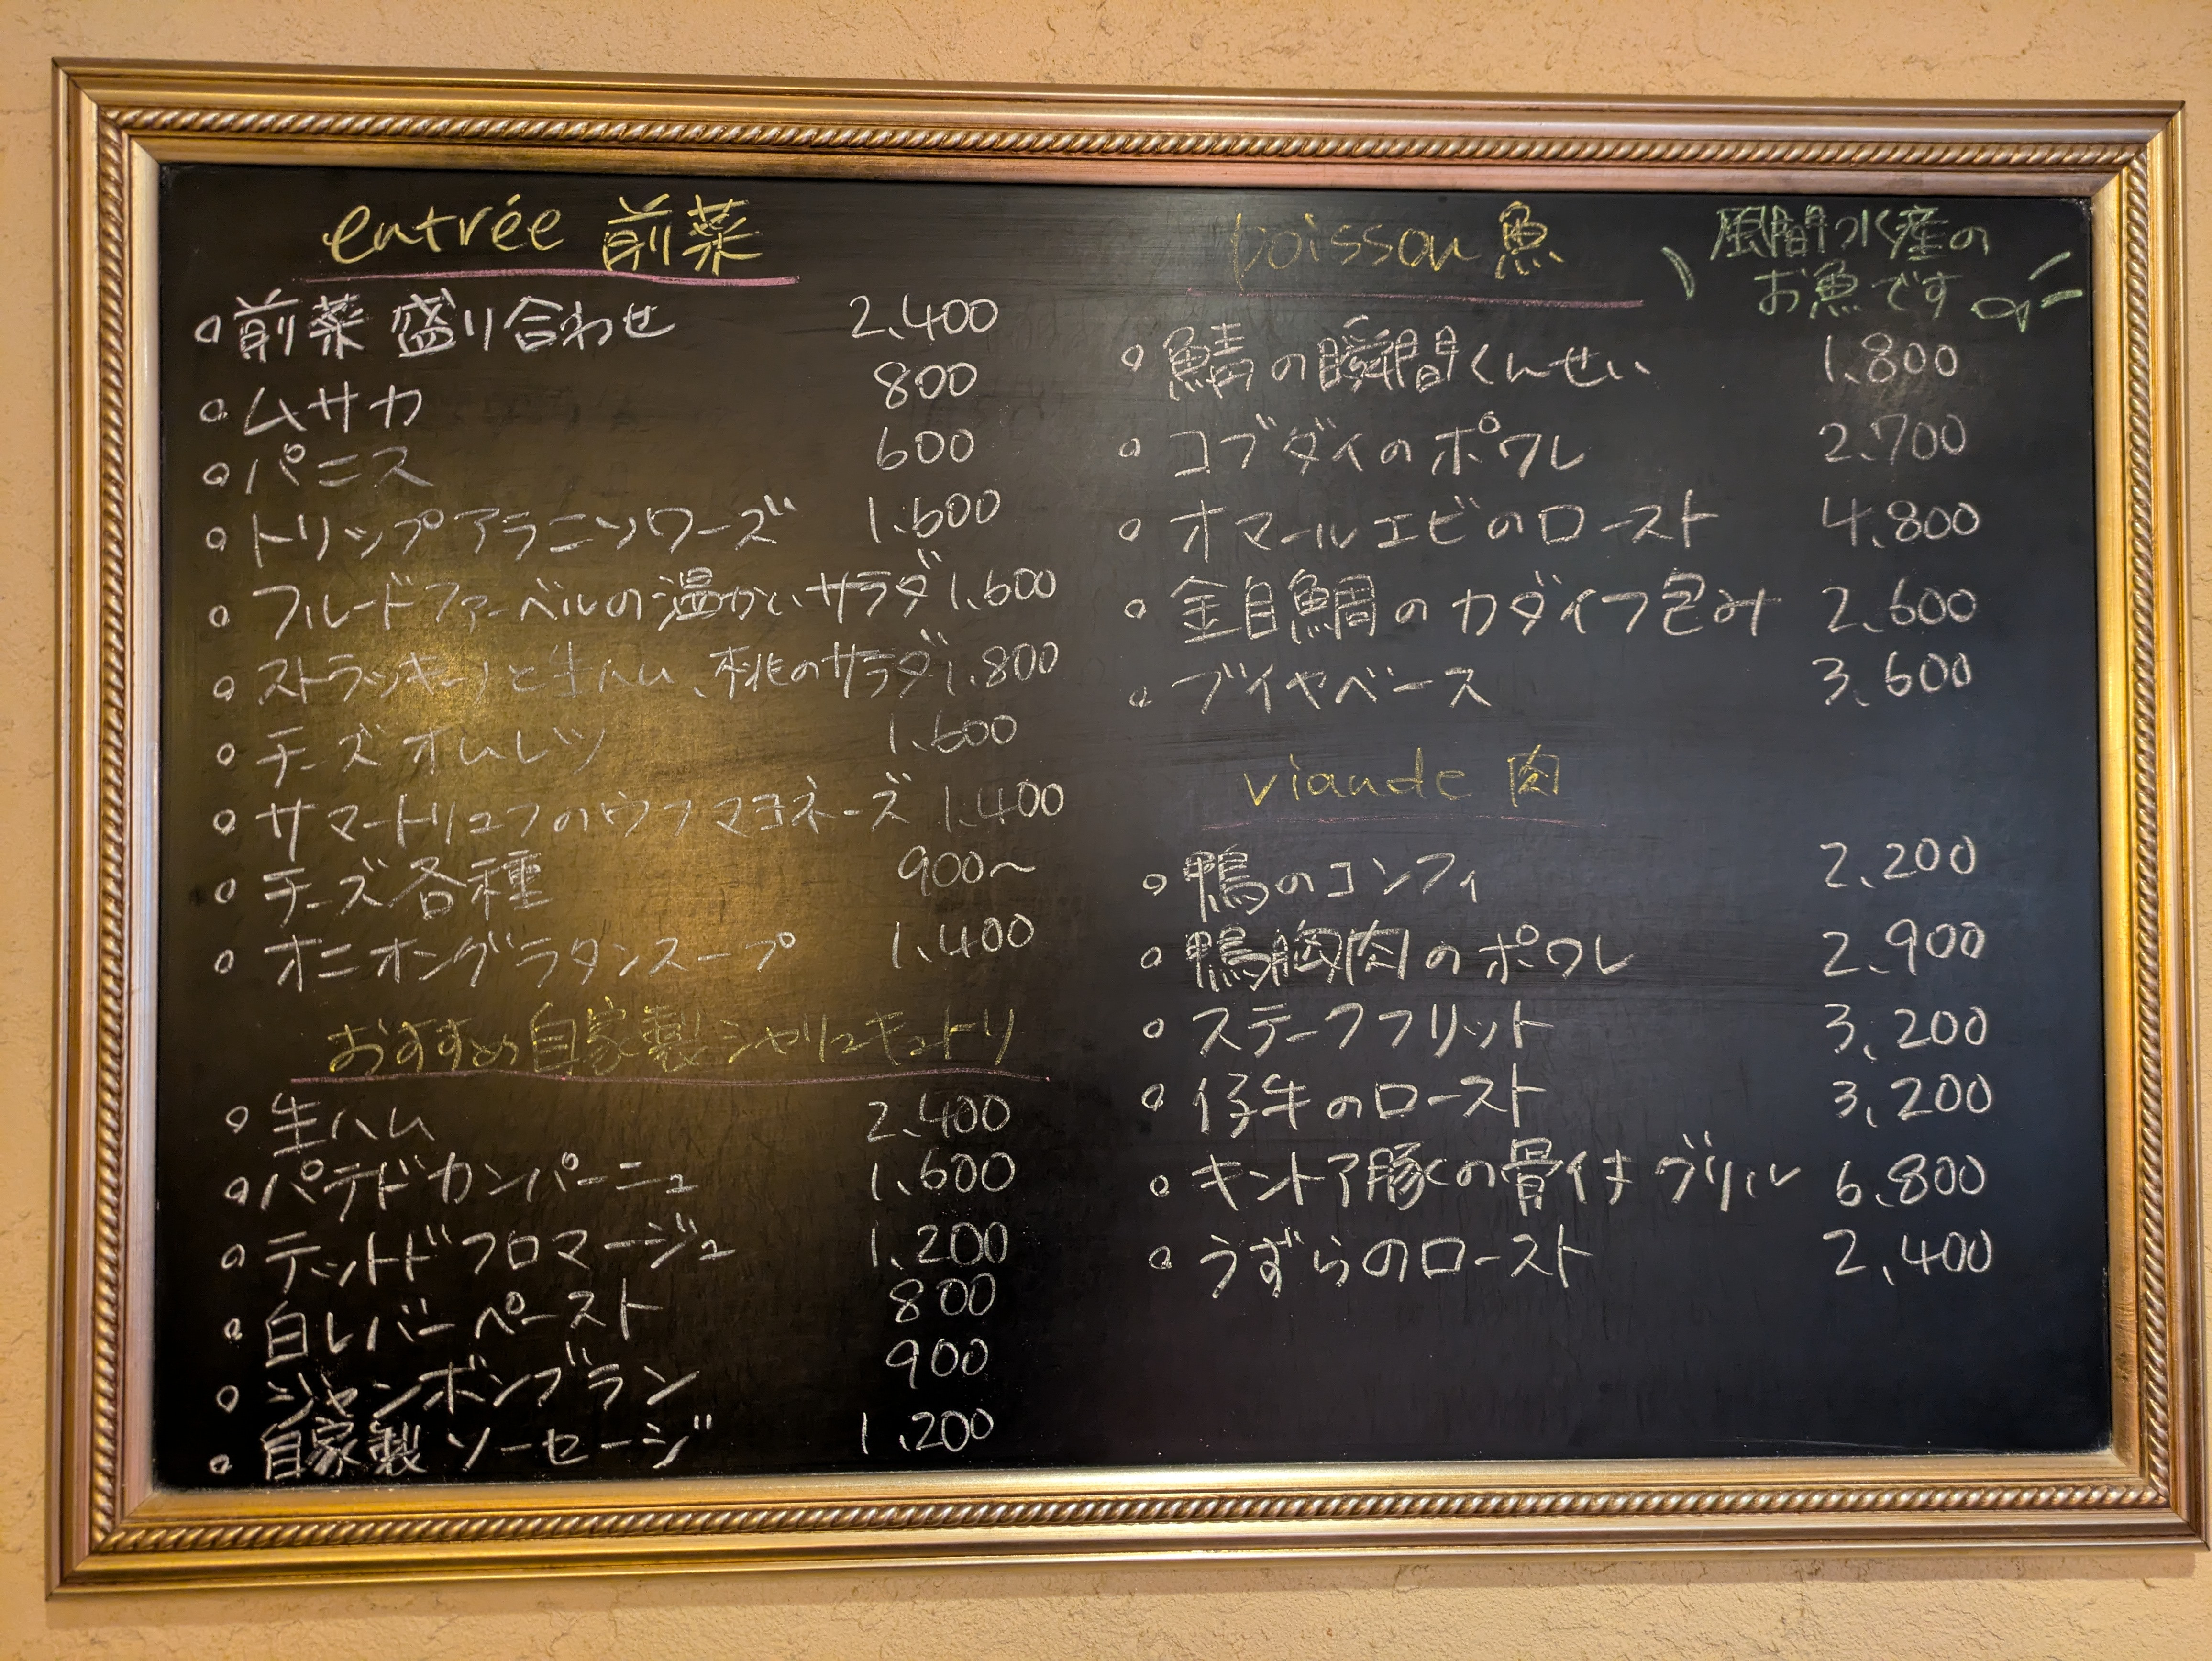 entrée 前菜
○前菜 盛り合わせ 2.400
○ムサカ 800
○パニス 600
○トリップアラニソワーズ 1.600
○フルードファーベルの温かいサラダ 1.600
○ストラッキーノと生ハム、桃のサラダ 1.800
○チーズオムレツ 1.600
○サマートリュフのウフマヨネーズ 1.400
○チーズ各種 900〜
○オニオングラタンスープ 1.400
おすすめ自家製シャリュキュトリ
○生ハム 2.400
○パテドカンパーニュ 1.600
○テットドフロマージュ 1.200
○白レバーペースト 800
○ジャンボンブラン 900
○自家製ソーセージ 1.200
poisson 魚
風間水産の
お魚です
○鯖の瞬間くんせい 1.800
○コブダイのポワレ 2.700
○オマールエビのロースト 4.800
○金目鯛のカダイフ包み 2.600
○ブイヤベース 3.600
viande 肉
○鴨のコンフィ 2.200
○鴨胸肉のポワレ 2.900
○ステーフフリット 3.200
○仔牛のロースト 3.200
○キントア豚の骨付グリル 6.800
○うずらのロースト 2.400